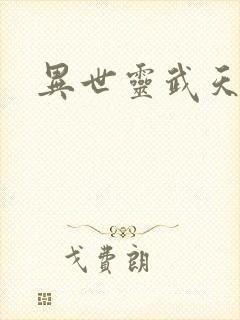 異世靈武天
戈費朗